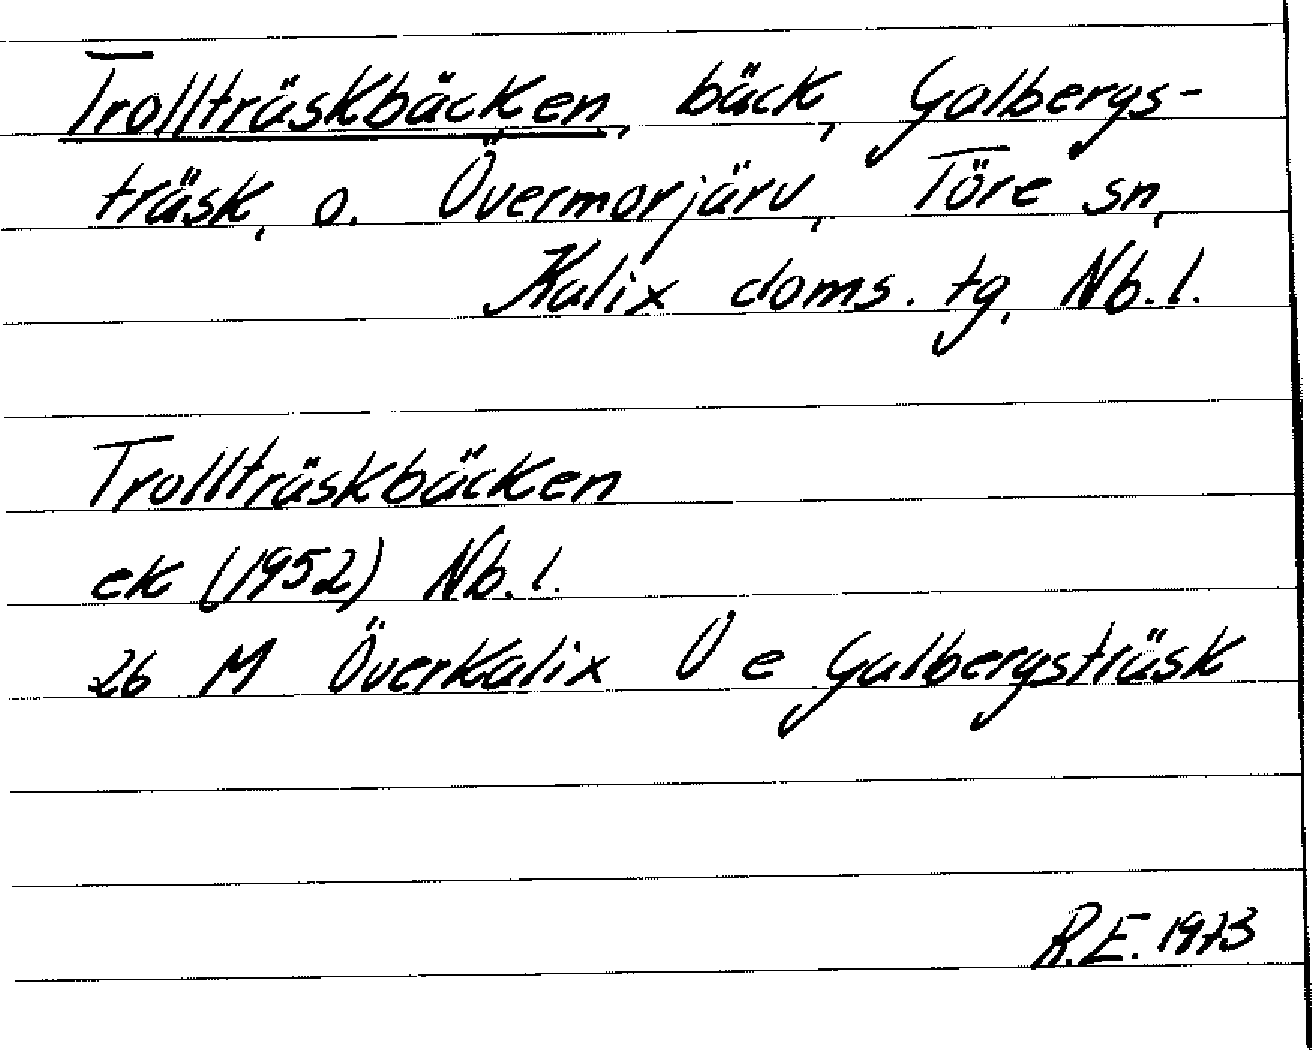 Trollträskbäcken, bäck, Galbergs-
träsk, o. Övermorjärv, Töre sn,
Kalix doms. tg, Nb. l.
Trollträskbäcken
ek (1952) Nb. l.
26 M Överkalix Ö e Galbergsträsk
R.E. 1973